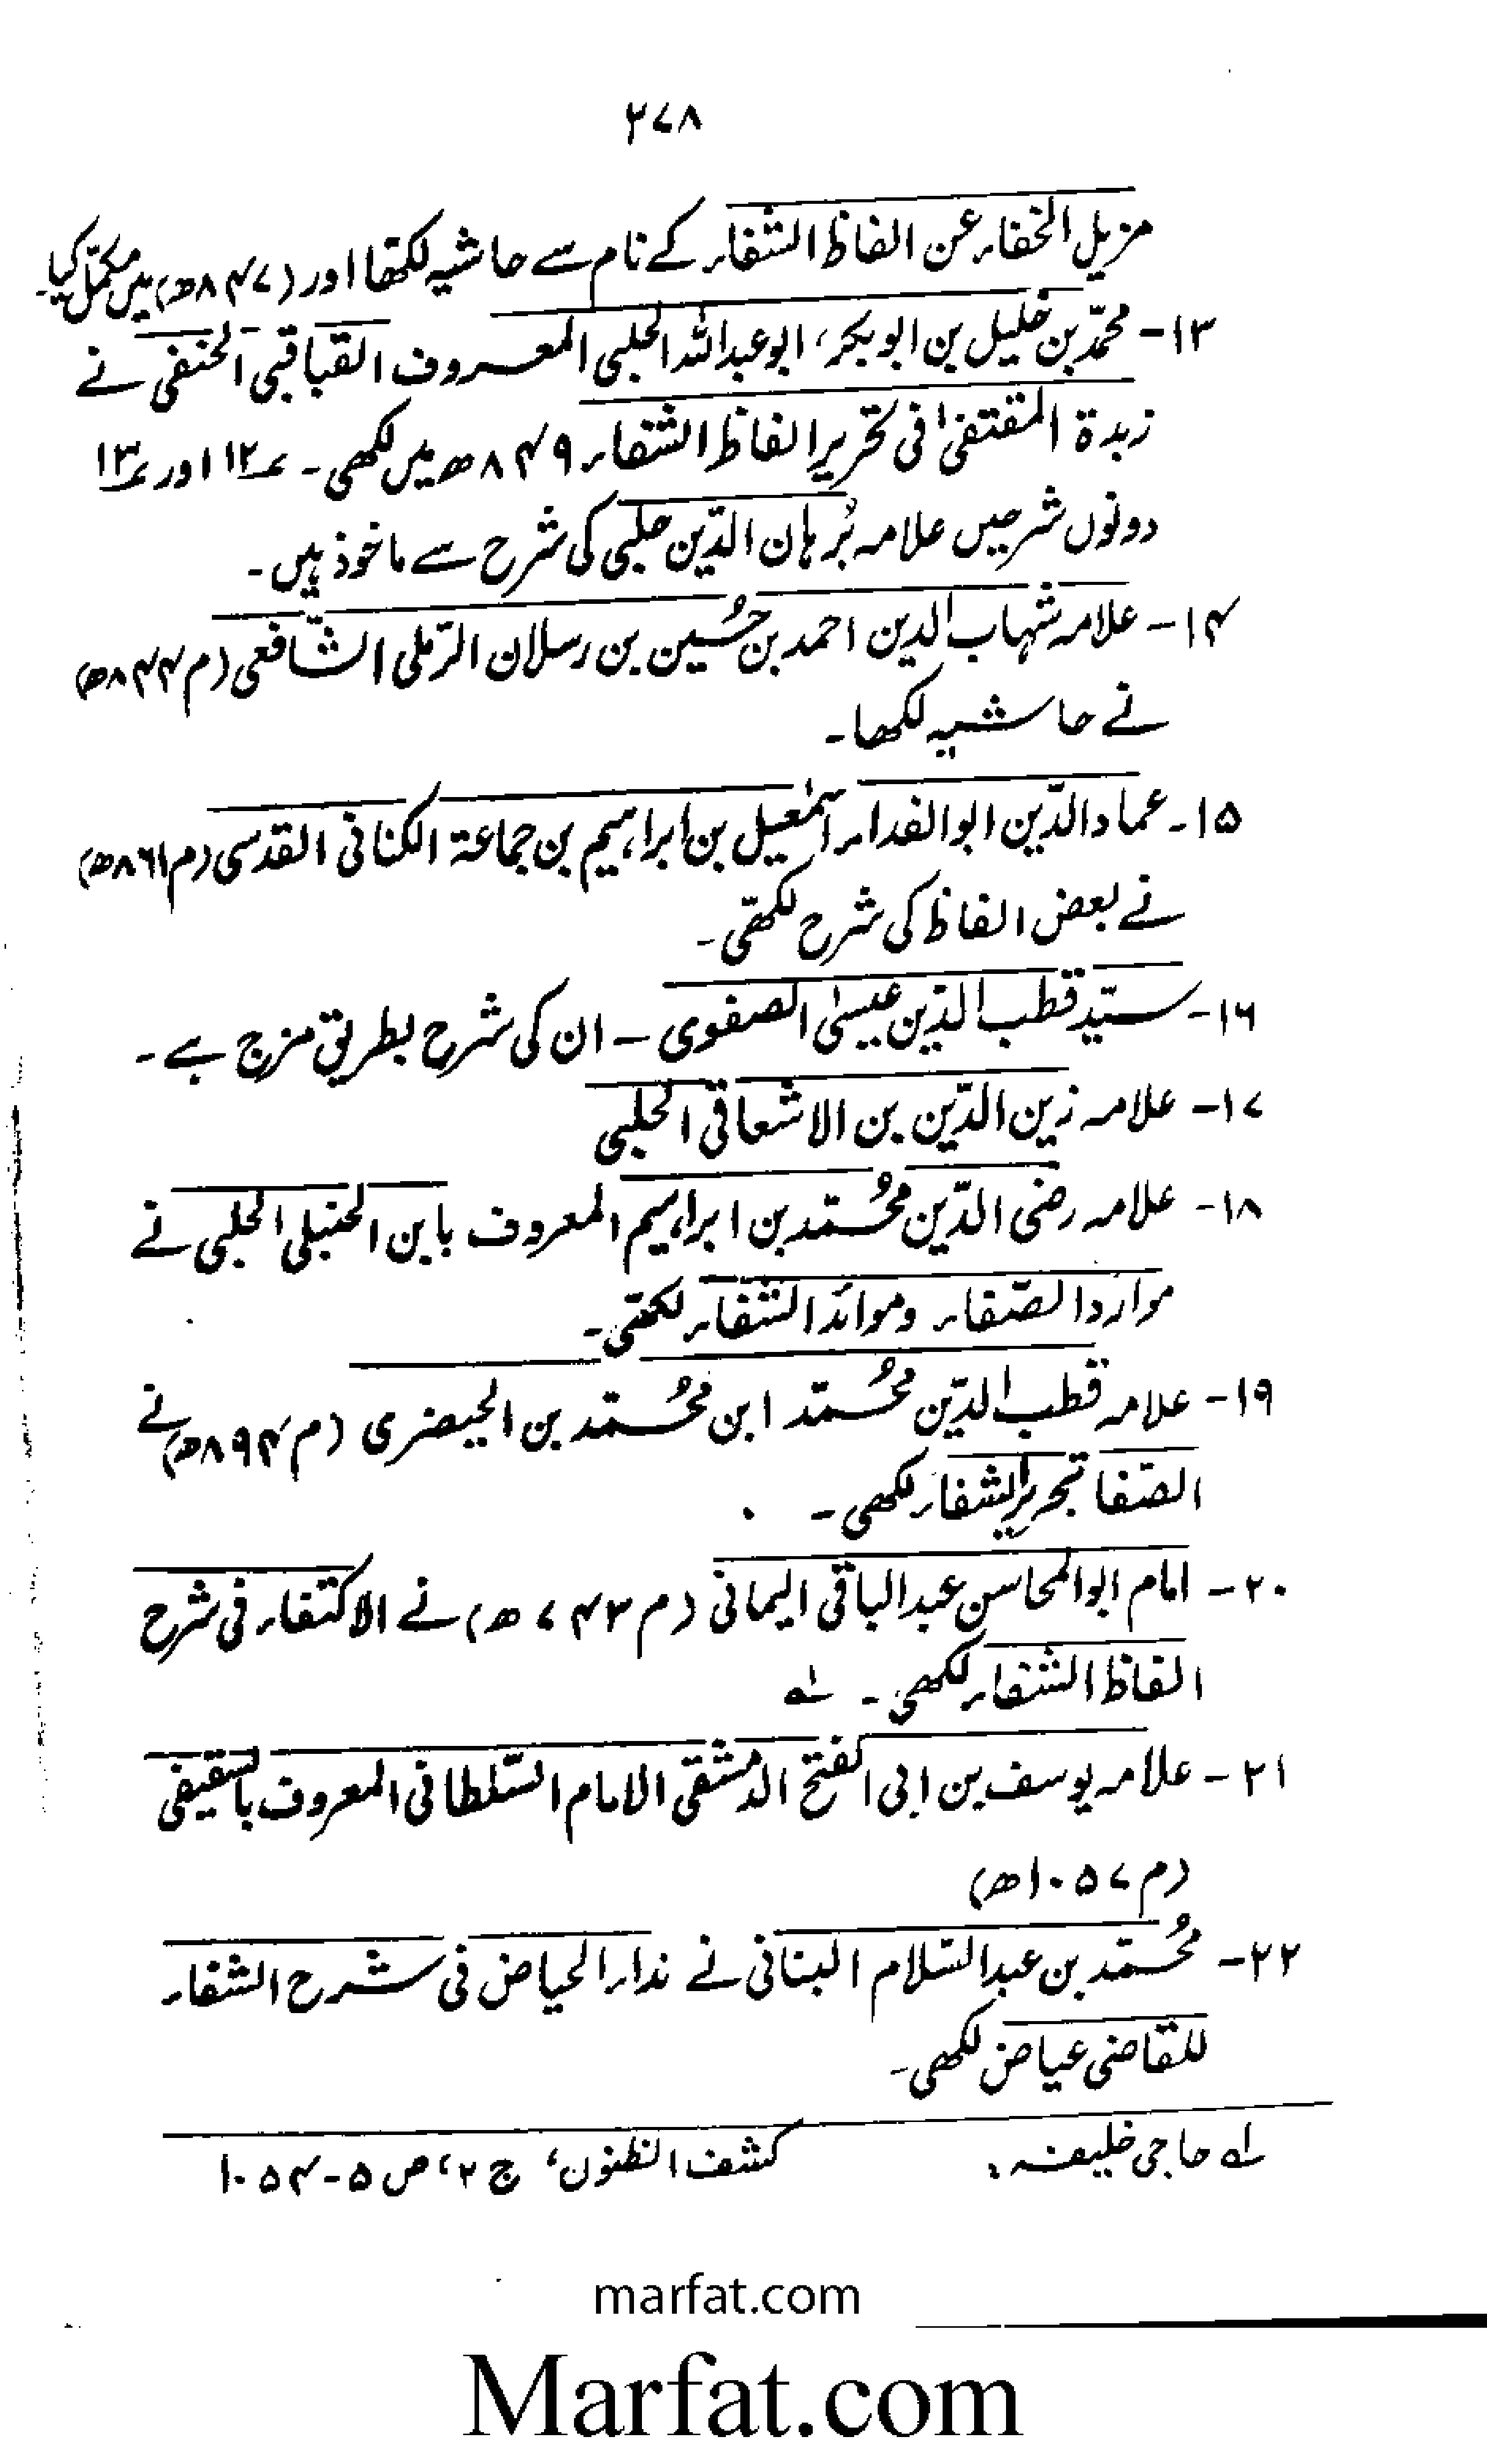 ۲۷۸
مزیل الخفاء عن الفاظ الشفاء کے نام سے حاشیہ لکھا اور (۸۴۷ھ) میں مکمل کیا۔
۱۳- محمّد بن خلیل بن ابوبکر، ابوعبداللہ الحلبی المعروف القباقبی الحنفی نے
زبدۃ المقتفیٰ فی تحریر الفاظ الشفاء ۸۴۹ھ میں لکھی۔ ؏۱۲ اور ؏۱۳
دونوں شرحیں علامہ بُرہان الدّین حلبی کی شرح سے ماخوذ ہیں۔
۱۴- علامہ شہاب الدین احمد بن حُسین بن رسلان الرّملی الشّافعی (م ۸۴۴ھ)
نے حاشیہ لکھا۔
۱۵۔ عماد الدّین ابوالفداء اسمٰعیل بن ابراہیم بن جماعۃ الکنانی القدسی (م ۸۶۱ھ)
نے بعض الفاظ کی شرح لکھّی۔
۱۶- سیّد قطب الدّین عیسیٰ الصفوی – ان کی شرح بطریق مزج ہے۔
۱۷- علامہ زین الدّین بن الاشعاقی الحلبی
۱۸- علامہ رضی الدّین محُمّد بن ابراہیم المعروف بابن الحنبلی الحلبی نے
موارد الصّفاء وموائد الشّفاء لکھّی۔
۱۹- علامہ قطب الدّین محُمّد ابن محُمّد بن الخیضری (م ۸۹۴ھ) نے
الصّفا بتحریر الشفاء لکھی۔
۲۰- امام ابوالمحاسن عبدالباقی الیمانی (م ۷۴۳ھ) نے الاکتفاء فی شرح
الفاظ الشفاء لکھی۔ لہ
۲۱- علامہ یوسف بن ابی الفتح الدمشقی الامام السّلطانی المعروف بالسقیفی
(م ۱۰۵۷ھ)
۲۲- محُمّد بن عبدالسّلام البنانی نے نداء الحیاض فی شرح الشفاء
للقاضی عیاض لکھی۔
لہ حاجی خلیفہ: کشف الظنون، ج ۲، ص ۵-۱۰۵۴
marfat.com
Marfat.com